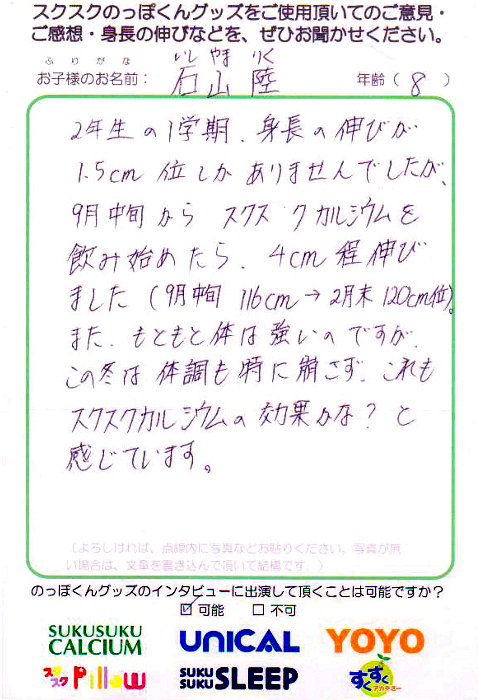 スクスクのっぽくんグッズをご使用頂いてのご意見・
ご感想・身長の伸びなどを、ぜひお聞かせください。
ふりがな いしやま りく
お子様のお名前： 石山 陸 年齢（ 8 ）
2年生の1学期、身長の伸びが
1.5cm 位しかありませんでしたが、
9月中旬から スクスクカルシウムを
飲み始めたら、4cm程伸び
ました（9月中旬 116cm→2月末 120cm位）。
また、もともと体は強いのですが、
この冬は 体調も特に崩さず、これも
スクスクカルシウムの効果かな？と
感じています。
（よろしければ、点線内に写真などお貼りください。写真が無
い場合は、文章を書き込んで頂いて結構です。）
のっぽくんグッズのインタビューに出演して頂くことは可能ですか？
☑ 可能 □ 不可
SUKUSUKU CALCIUM UNICAL YOYO
スクスク Pillow SUKU SUKU SLEEP すくすくアカデミー